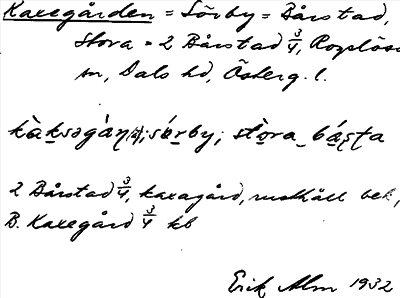 Kaxegården = Sörby = Bårstad,
Stora = 2 Bårstad 3/4, Rogslösa
sn, Dals hd, Österg. l.
stòra
2 Bårstad 3/4, kaxagård, rusthåll bek,
B. Kaxegård 3/4 kb
Erik Alm 1932